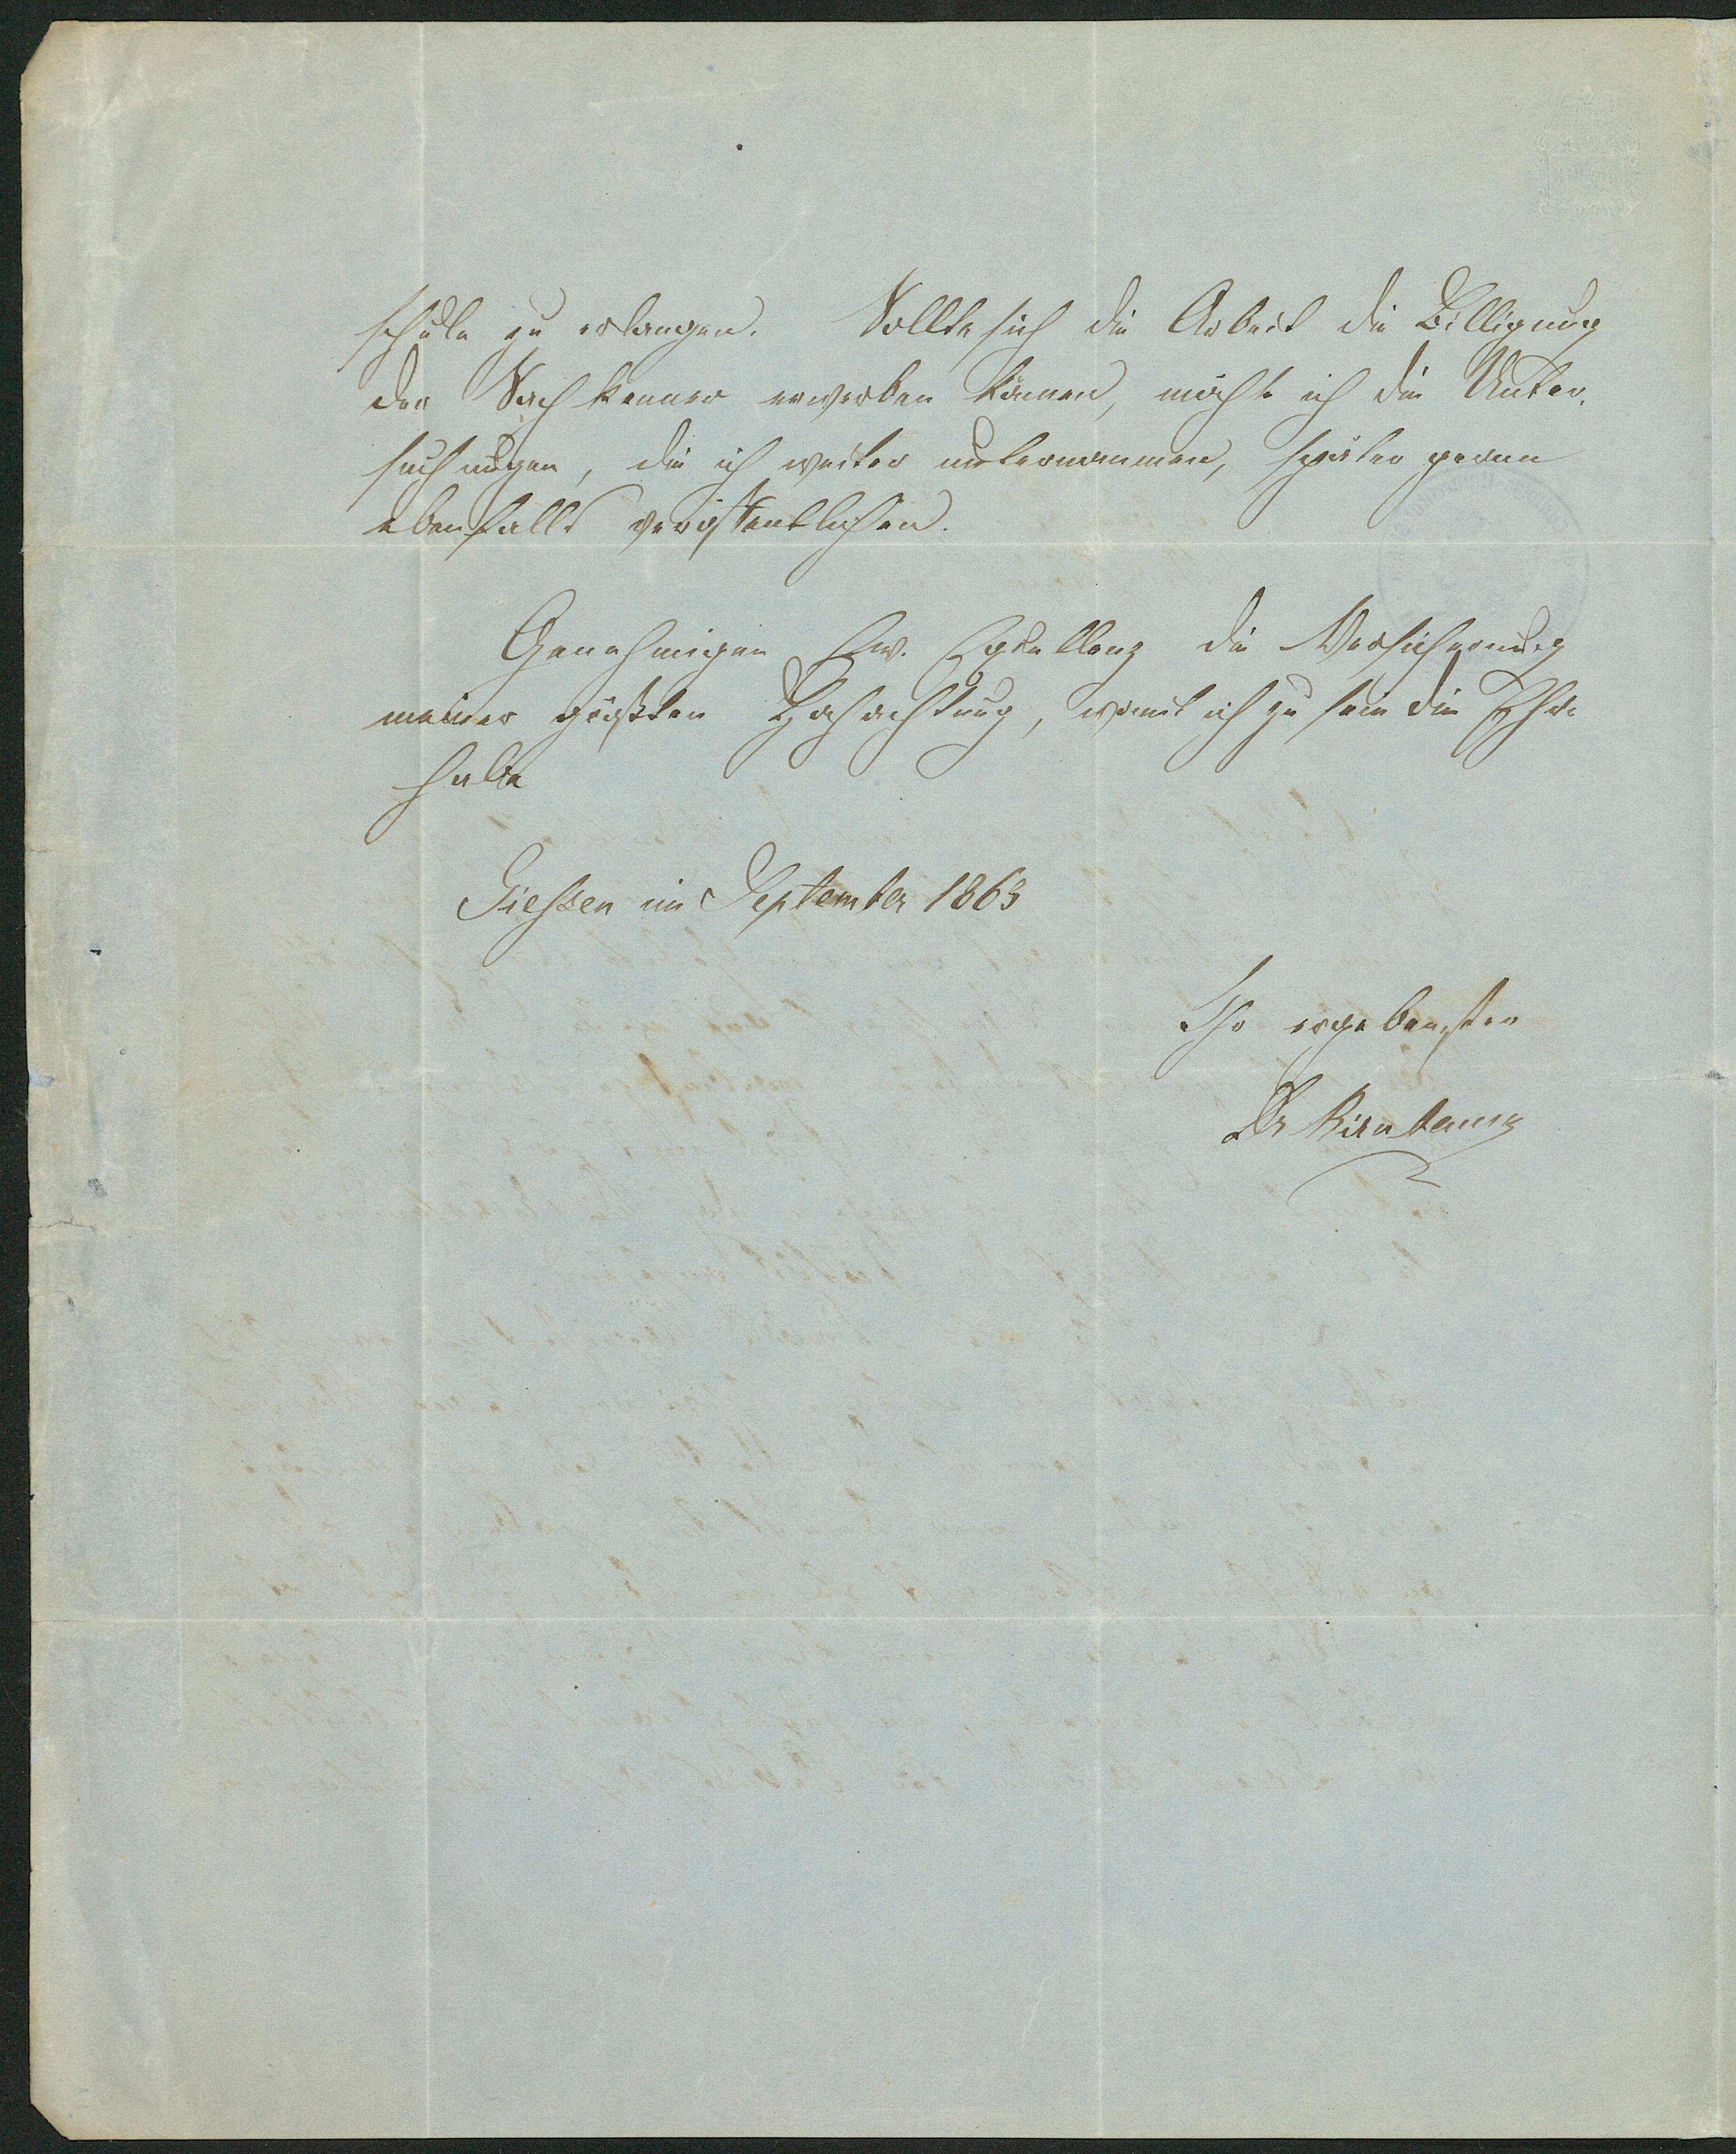 schule zu erlangen. Sollte sich die Arbeit die Billigung
der Sachkenner erwerben können, möchte ich die Unter-
suchungen, die ich weiter unternommen, später gerne
ebenfalls veröffentlichen.
Genehmigen Ew. Exzellenz die Versicherung
meiner größten Hochachtung, womit ich zu sein die Ehre
habe
Giessen im September 1863
Ihr ergebenster
Dr Birnbaum